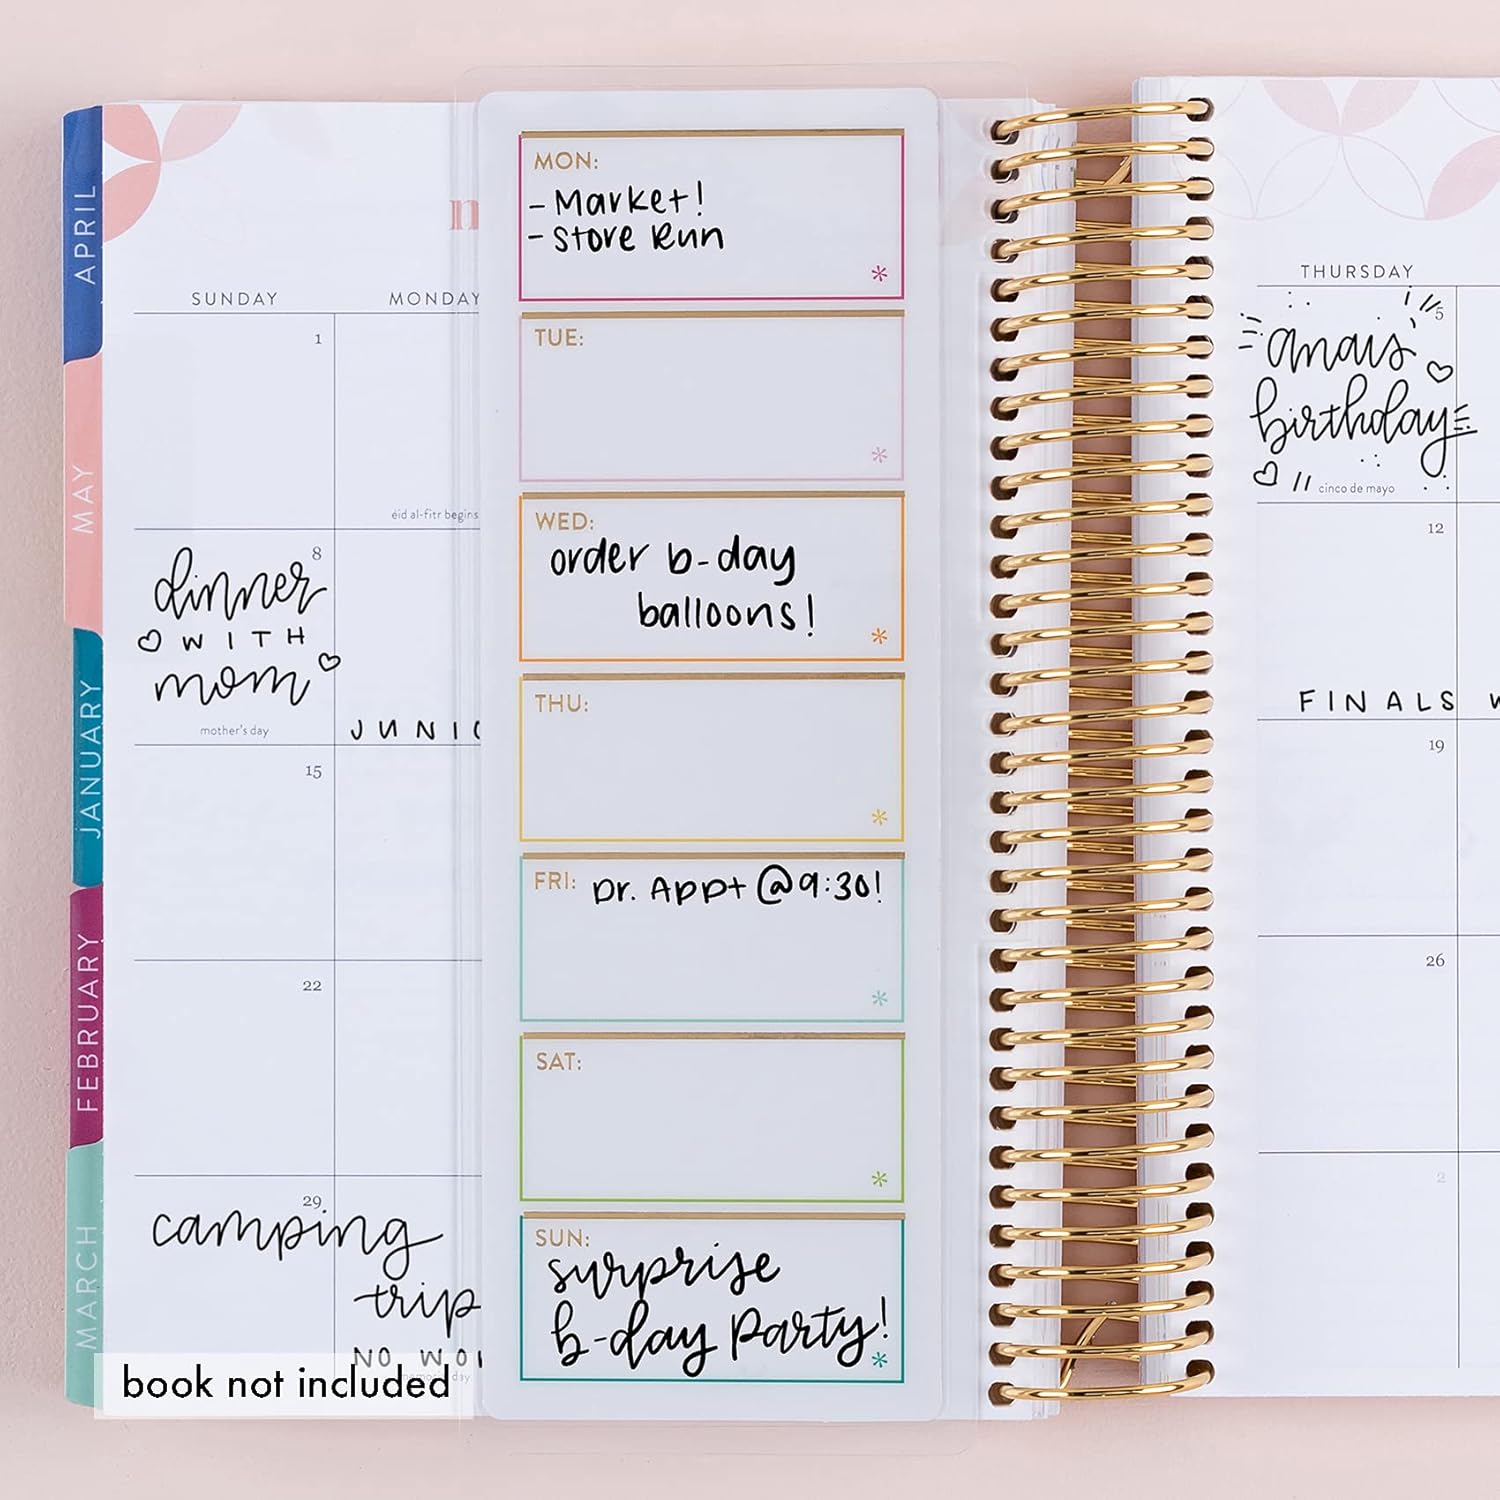 APRIL
MAY
JANUARY
FEBRUARY
MARCH
SUNDAY
MONDAY
1
eid al-fitr begins
8
dinner
WITH
mom
mother's day
15
22
29
camping
trip
NO
day
book not included
MON:
- Market!
- Store Run
TUE:
WED:
order b-day
balloons!
THU:
FRI: Dr. Appt @ 9:30!
SAT:
SUN:
surprise
b-day party!
THURSDAY
5
anais
birthday
cinco de mayo
12
FINALS
19
26
2